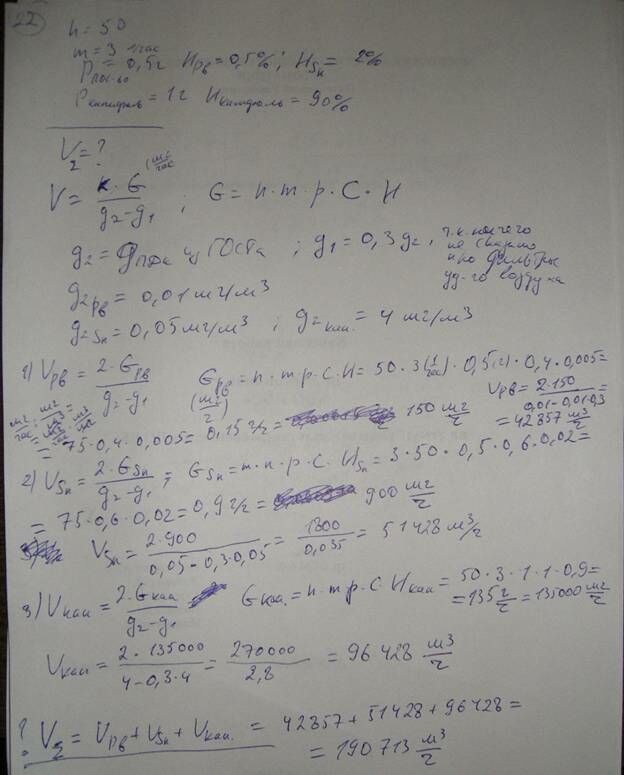 22
n = 50
m = 3 1/час
Pпос-во = 0,5г HPв = 0,5%; HSn = 2%
Pканифоль = 1г Hканифоль = 90%
VΣ = ? (мг/час
V = K·G / g2-g1 ; G = n·m·p·C·H
g2 = gПДК из ГОСТа ; g1 = 0,3g2, т.к. ничего
не сказано
про фильтры
уд-го воздуха
g2Pв = 0,01 мг/м3
g2Sn = 0,05 мг/м3 ; g2кан. = 4 мг/м3
1) VPв = 2·GPв / g2-g1 GPв = n·m·p·C·H = 50·3(1/час)·0,5(г)·0,4·0,005 =
(мг/ч)
мг/час : мг/м3 = м3/час
= 75·0,4·0,005 = 0,15 г/ч = 150 мг/ч VPв = 2·150 / 0,01-0,01·0,3 =
= 42857 м3/ч
2) VSn = 2·GSn / g2-g1 ; GSn = m·n·p·C·HSn = 3·50·0,5·0,6·0,02 =
= 75·0,6·0,02 = 0,9 г/ч = 900 мг/ч
VSn = 2·900 / 0,05-0,3·0,05 = 1800 / 0,035 = 51428 м3/ч
3) Vкан = 2·Gкан / g2-g1 Gкан. = n·m·p·C·Hкан = 50·3·1·1·0,9 =
= 135 г/ч = 135000 мг/ч
Vкан = 2·135000 / 4-0,3·4 = 270000 / 2,8 = 96428 м3/ч
? VΣ = VPв + VSn + Vкан. = 42857 + 51428 + 96428 =
= 190713 м3/ч